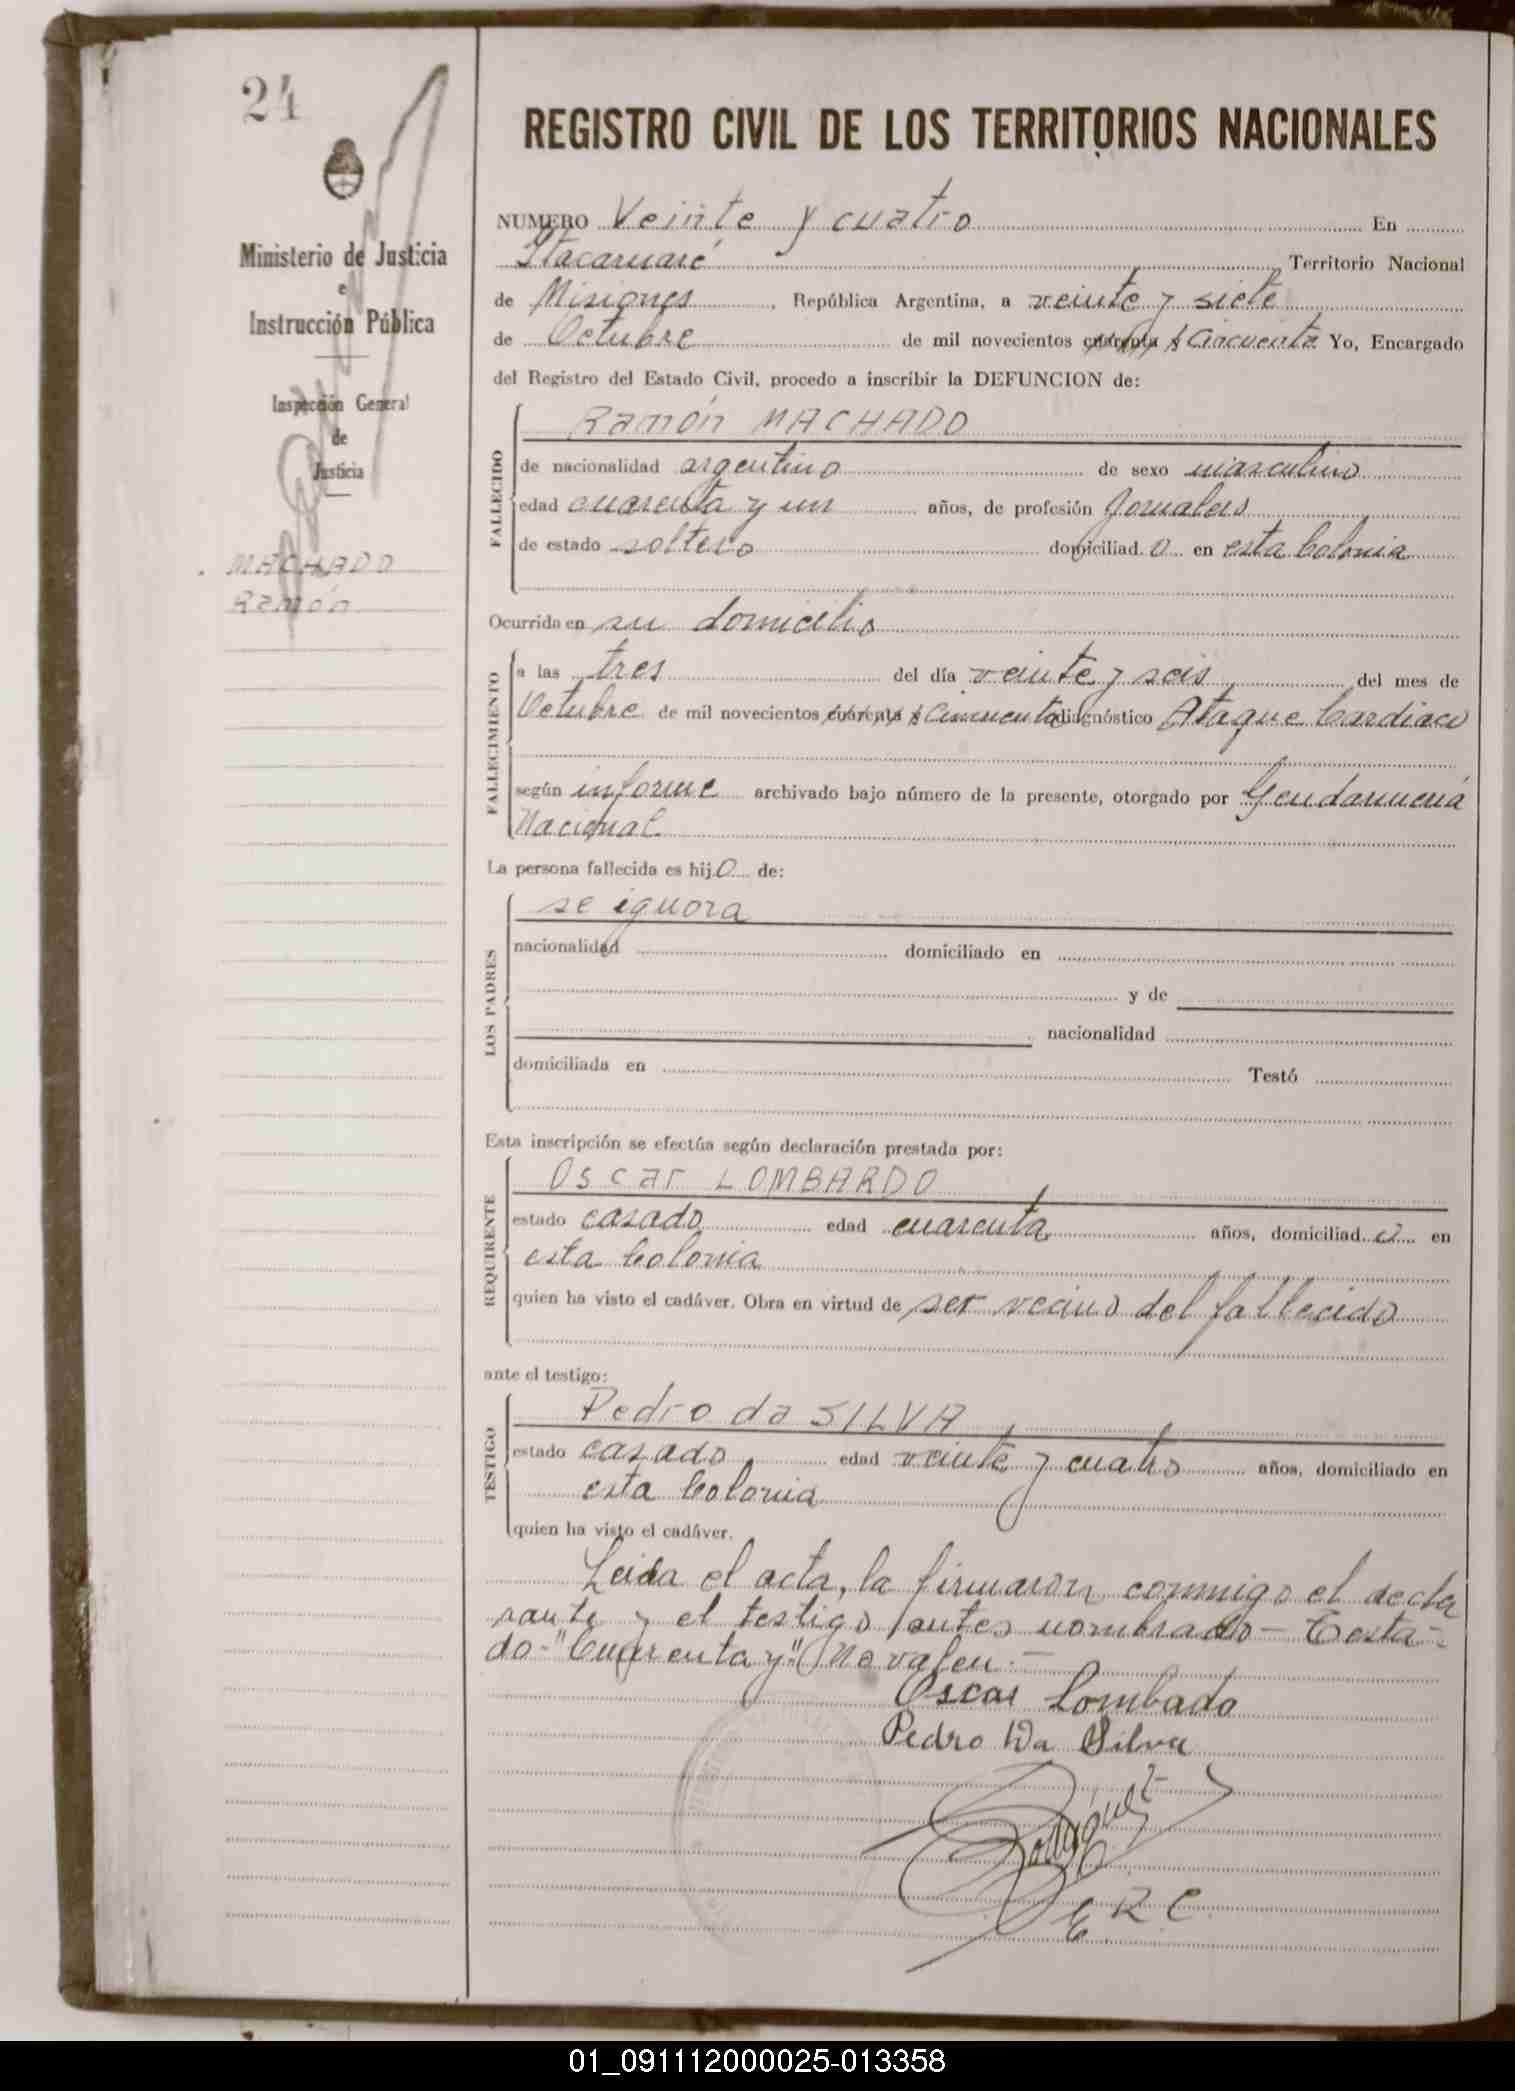 24
Ministerio de Justicia
e
Instrucción Pública
Inspección General
de
Justicia
MACHADO
Ramón
REGISTRO CIVIL DE LOS TERRITORIOS NACIONALES
NUMERO Veinte y cuatro En
Itacaruaré Territorio Nacional
de Misiones, República Argentina, a veinte y siete
de Octubre de mil novecientos cuarenta y Cincuenta Yo, Encargado
del Registro del Estado Civil, procedo a inscribir la DEFUNCION de:
FALLECIDO
Ramón MACHADO
de nacionalidad argentino de sexo masculino
edad cuarenta y un años, de profesión Jornalero
de estado soltero domiciliad o en esta Colonia
Ocurrida en su domicilio
FALLECIMIENTO
a las tres del día veinte y seis del mes de
Octubre de mil novecientos cuarenta y Cincuenta diagnóstico Ataque Cardiaco
según informe archivado bajo número de la presente, otorgado por Gendarmeria
Nacional
La persona fallecida es hij o de:
LOS PADRES
se ignora
nacionalidad domiciliado en
y de
nacionalidad
domiciliada en Testó
Esta inscripción se efectúa según declaración prestada por:
REQUIRENTE
Oscar LOMBARDO
estado casado edad cuarenta años, domiciliad o en
esta Colonia
quien ha visto el cadáver. Obra en virtud de ser vecino del fallecido
ante el testigo:
TESTIGO
Pedro da SILVA
estado casado edad veinte y cuatro años, domiciliado en
esta Colonia
quien ha visto el cadáver.
Leida el acta, la firmaron conmigo el decla
rante y el testigo antes nombrado - Testa-
do - "Cuarenta y" No valen. -
Oscar Lombado
Pedro Da Silva
Rodriguez
E. R. C.
01_091112000025-013358